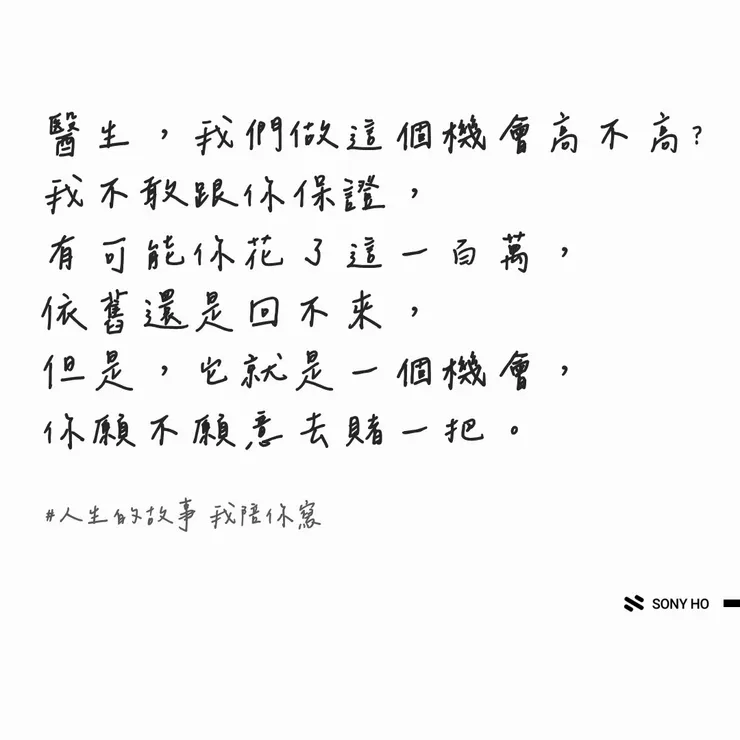 醫生，我們做這個機會高不高?
我不敢跟你保證，
有可能你花了這一百萬，
依舊還是回不來，
但是，它就是一個機會，
你願不願意去賭一把。
#人生的故事 我陪你寫
SONY HO